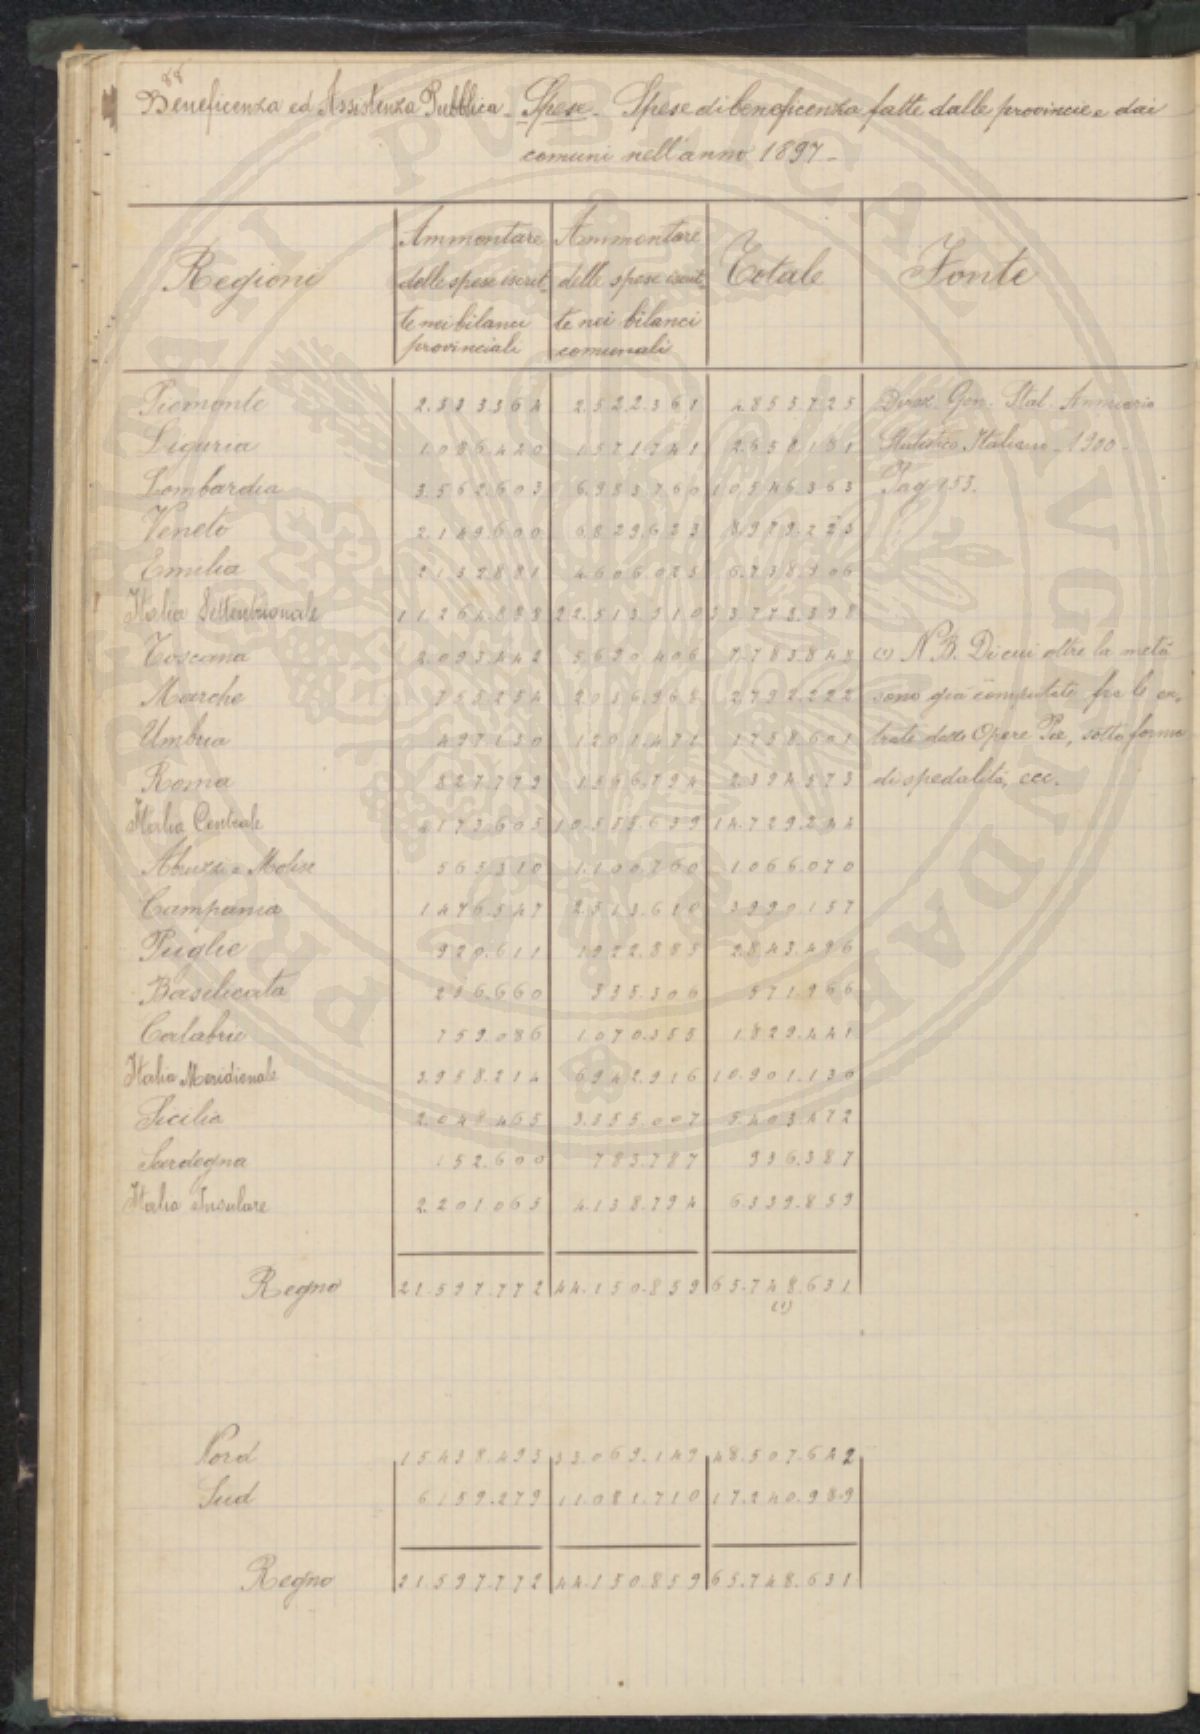 88
Beneficenza ed Assistenza Pubblica - Spese - Spese di beneficenza fatte dalle provincie e dai
comuni nell'anno 1897 -
Regioni | Ammontare delle spese iscritte nei bilanci provinciali | Ammontare delle spese iscritte nei bilanci comunali | Totale | Fonte
Piemonte 2.333.364 2.522.361 4.855.725 Direz. Gen. Stat. Annuario
Liguria 1.086.440 1.571.741 2.658.181 Statistico Italiano - 1900 -
Lombardia 3.562.603 6.983.760 10.546.363 Pag 153.
Veneto 2.149.600 6.829.623 8.979.223
Emilia 2.132.881 4.606.025 6.738.906
Italia Settentrionale 11.264.888 22.513.510 33.778.398
Toscana 2.093.442 5.690.406 7.783.848 (1) N.B. Di cui oltre la metà
Marche 755.254 2.036.968 2.792.222 sono già computate fra le en-
Umbria 497.130 1.261.471 1.758.601 trate delle Opere Pie, sotto forma
Roma 827.779 1.566.794 2.394.573 di spedalità, ecc.
Italia Centrale 4.173.605 10.555.639 14.729.244
Abruzzi e Molise 565.310 1.100.760 1.666.070
Campania 1.476.547 2.513.610 3.990.157
Puglie 920.611 1.922.885 2.843.496
Basilicata 236.660 335.306 571.966
Calabrie 759.086 1.070.355 1.829.441
Italia Meridionale 3.958.214 6.942.916 10.901.130
Sicilia 2.048.465 3.355.007 5.403.472
Sardegna 152.600 783.787 936.387
Italia Insulare 2.201.065 4.138.794 6.339.859
Regno 21.597.772 44.150.859 65.748.631
(1)
Nord 15.438.493 33.069.149 48.507.642
Sud 6.159.279 11.081.710 17.240.989
Regno 21.597.772 44.150.859 65.748.631